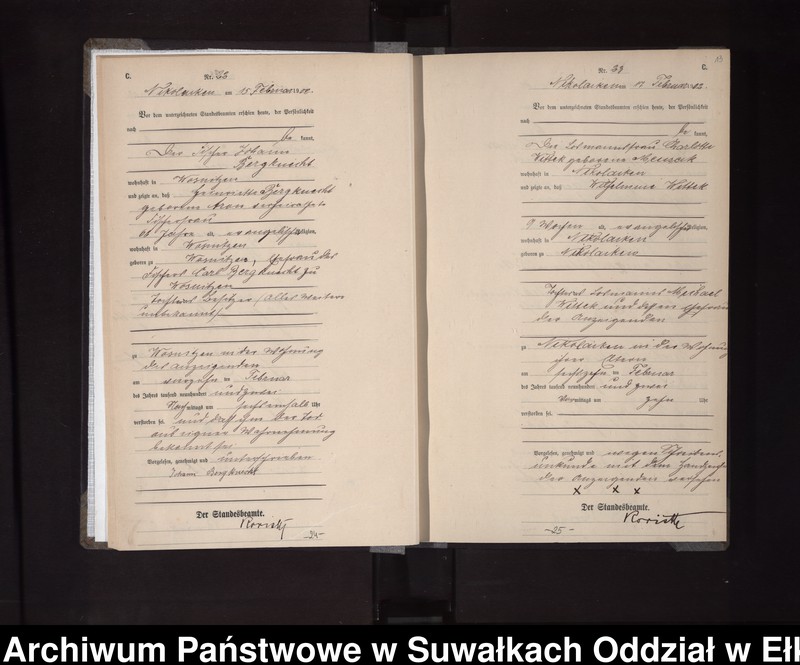 C.
Nr. 22
Nikolaiken am 15 Februar 1902
Vor dem unterzeichneten Standesbeamten erschien heute, der Persönlichkeit
nach
kannt,
Der Fischer Johann
Bergknecht
wohnhaft in Wosnitzen
und zeigte an, daß Henriette Bergknecht
geborene Aron
Fischerfrau
Jahre alt, evangelischer Religion,
wohnhaft in Wosnitzen
geboren zu Wosnitzen, Ehefrau des
Fischers Carl Bergknecht zu
Wosnitzen
Tochter des Besitzer (Alles Weitere
unbekannt)
zu Wosnitzen in der Wohnung
des Anzeigenden
am vierzehn ten Februar
des Jahres tausend neunhundert und zwei
Nachmittags um Uhr
verstorben sei, und daß ihm der Tod
aus eigener Wahrnehmung
bekannt sei
Vorgelesen, genehmigt und unterschrieben
Johann Bergknecht
Der Standesbeamte.
-24-
13
Nr. 23
C.
Nikolaiken am 17 Februar 1902
Vor dem unterzeichneten Standesbeamten erschien heute, der Persönlichkeit
nach
kannt,
Die Losmannsfrau Charlotte
Wittek geborene
wohnhaft in Nikolaiken
und zeigte an, daß Wilhelmine Wittek
9 Wochen alt, evangelischer Religion,
wohnhaft in Nikolaiken
geboren zu Nikolaiken
Tochter des Losmanns Michael
Wittek und dessen Ehefrau
der Anzeigenden
zu Nikolaiken in der Wohnung
ihrer Eltern
am sechszehn ten Februar
des Jahres tausend neunhundert und zwei
Vormittags um zehn Uhr
verstorben sei.
Vorgelesen, genehmigt und wegen Schreibens
unkunde mit dem Handzeichen
der Anzeigenden versehen
X X X
Der Standesbeamte.
-25-
Archiwum Państwowe w Suwałkach Oddział w Ełk